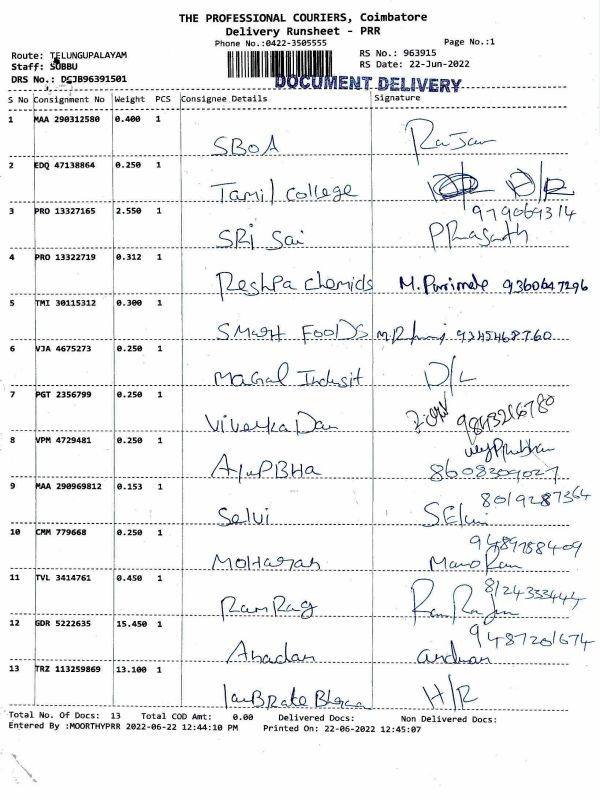 THE PROFESSIONAL COURIERS, Coimbatore
Delivery Runsheet - PRR
Phone No.:0422-3505555 Page No.:1
Route: TELUNGUPALAYAM RS No.: 963915
Staff: SUBBU RS Date: 22-Jun-2022
DRS No.: DCJB96391501
DOCUMENT DELIVERY
S No Consignment No Weight PCS Consignee Details Signature
1 MAA 290312580 0.400 1
SBOA Rajan
2 EDQ 47138864 0.250 1
Tamil College
3 PRO 13327165 2.550 1
SRI Sai Prasath
4 PRO 13322719 0.312 1
Reshpa chemids 9360647296
5 TMI 30115312 0.300 1
Smart FOODS 9345468760
6 VJA 4675273 0.250 1
D/L
7 PGT 2356799 0.250 1
9843216780
8 VPM 4729481 0.250 1
8608309027
9 MAA 290969812 0.153 1
8019287364
Selvi
10 CMM 779668 0.250 1
9489788409
11 TVL 3414761 0.450 1
8124333444
RamRag
12 GDR 5222635 15.450 1
9487201674
13 TRZ 113259869 13.100 1
H/R
Total No. Of Docs: 13 Total COD Amt: 0.00 Delivered Docs: Non Delivered Docs:
Entered By :MOORTHYPRR 2022-06-22 12:44:10 PM Printed On: 22-06-2022 12:45:07